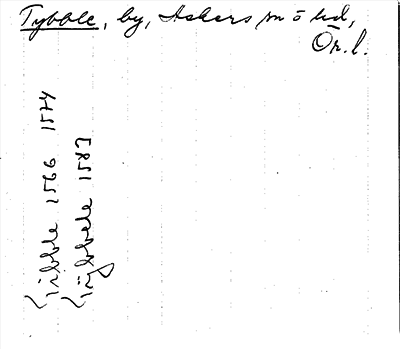 Tybble, by, Askers sn o hd,
Ör. l.
Tibble 1566 1574
Tijbbele 1583